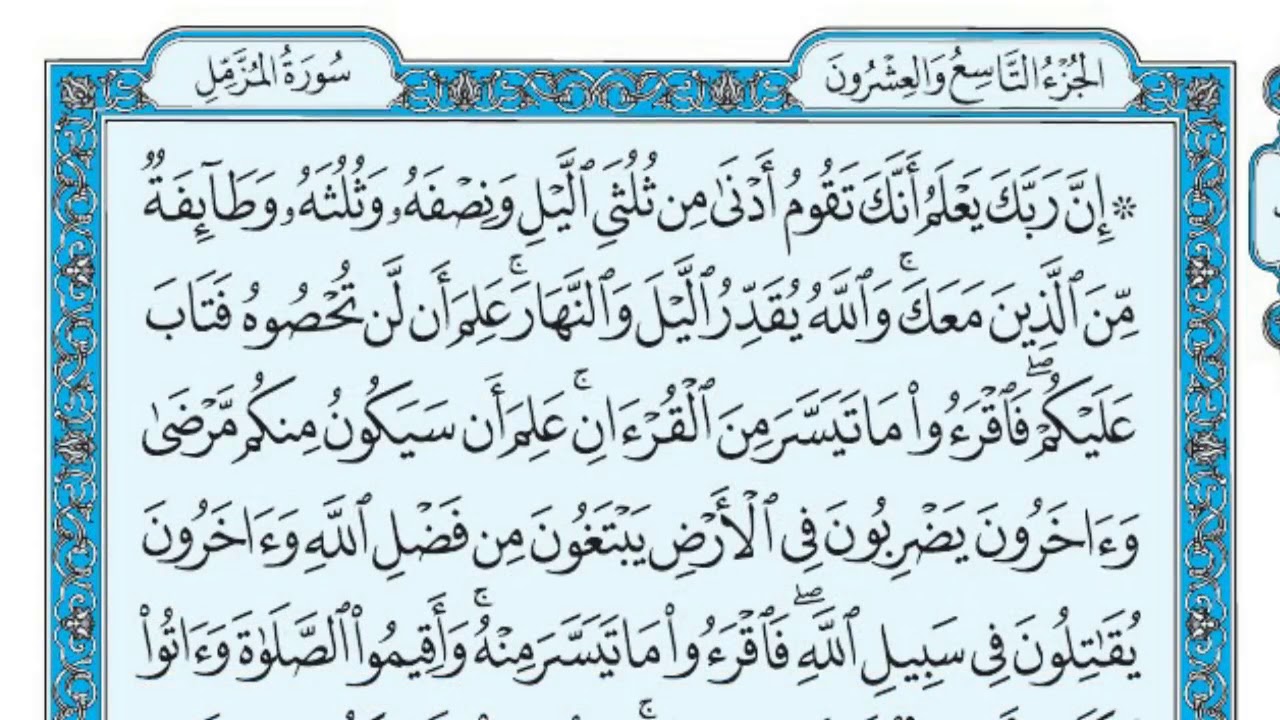 الجُزْءُ التَّاسِعُ وَالعِشْرُونَ
سُورَةُ المُزَّمِّلِ
۞ إِنَّ رَبَّكَ يَعْلَمُ أَنَّكَ تَقُومُ أَدْنَىٰ مِن ثُلُثَىِ ٱلَّيْلِ وَنِصْفَهُۥ وَثُلُثَهُۥ وَطَآئِفَةٌ
مِّنَ ٱلَّذِينَ مَعَكَۚ وَٱللَّهُ يُقَدِّرُ ٱلَّيْلَ وَٱلنَّهَارَۚ عَلِمَ أَن لَّن تُحْصُوهُ فَتَابَ
عَلَيْكُمْۖ فَٱقْرَءُوا۟ مَا تَيَسَّرَ مِنَ ٱلْقُرْءَانِۚ عَلِمَ أَن سَيَكُونُ مِنكُم مَّرْضَىٰ
وَءَاخَرُونَ يَضْرِبُونَ فِى ٱلْأَرْضِ يَبْتَغُونَ مِن فَضْلِ ٱللَّهِ وَءَاخَرُونَ
يُقَٰتِلُونَ فِى سَبِيلِ ٱللَّهِۖ فَٱقْرَءُوا۟ مَا تَيَسَّرَ مِنْهُۚ وَأَقِيمُوا۟ ٱلصَّلَوٰةَ وَءَاتُوا۟